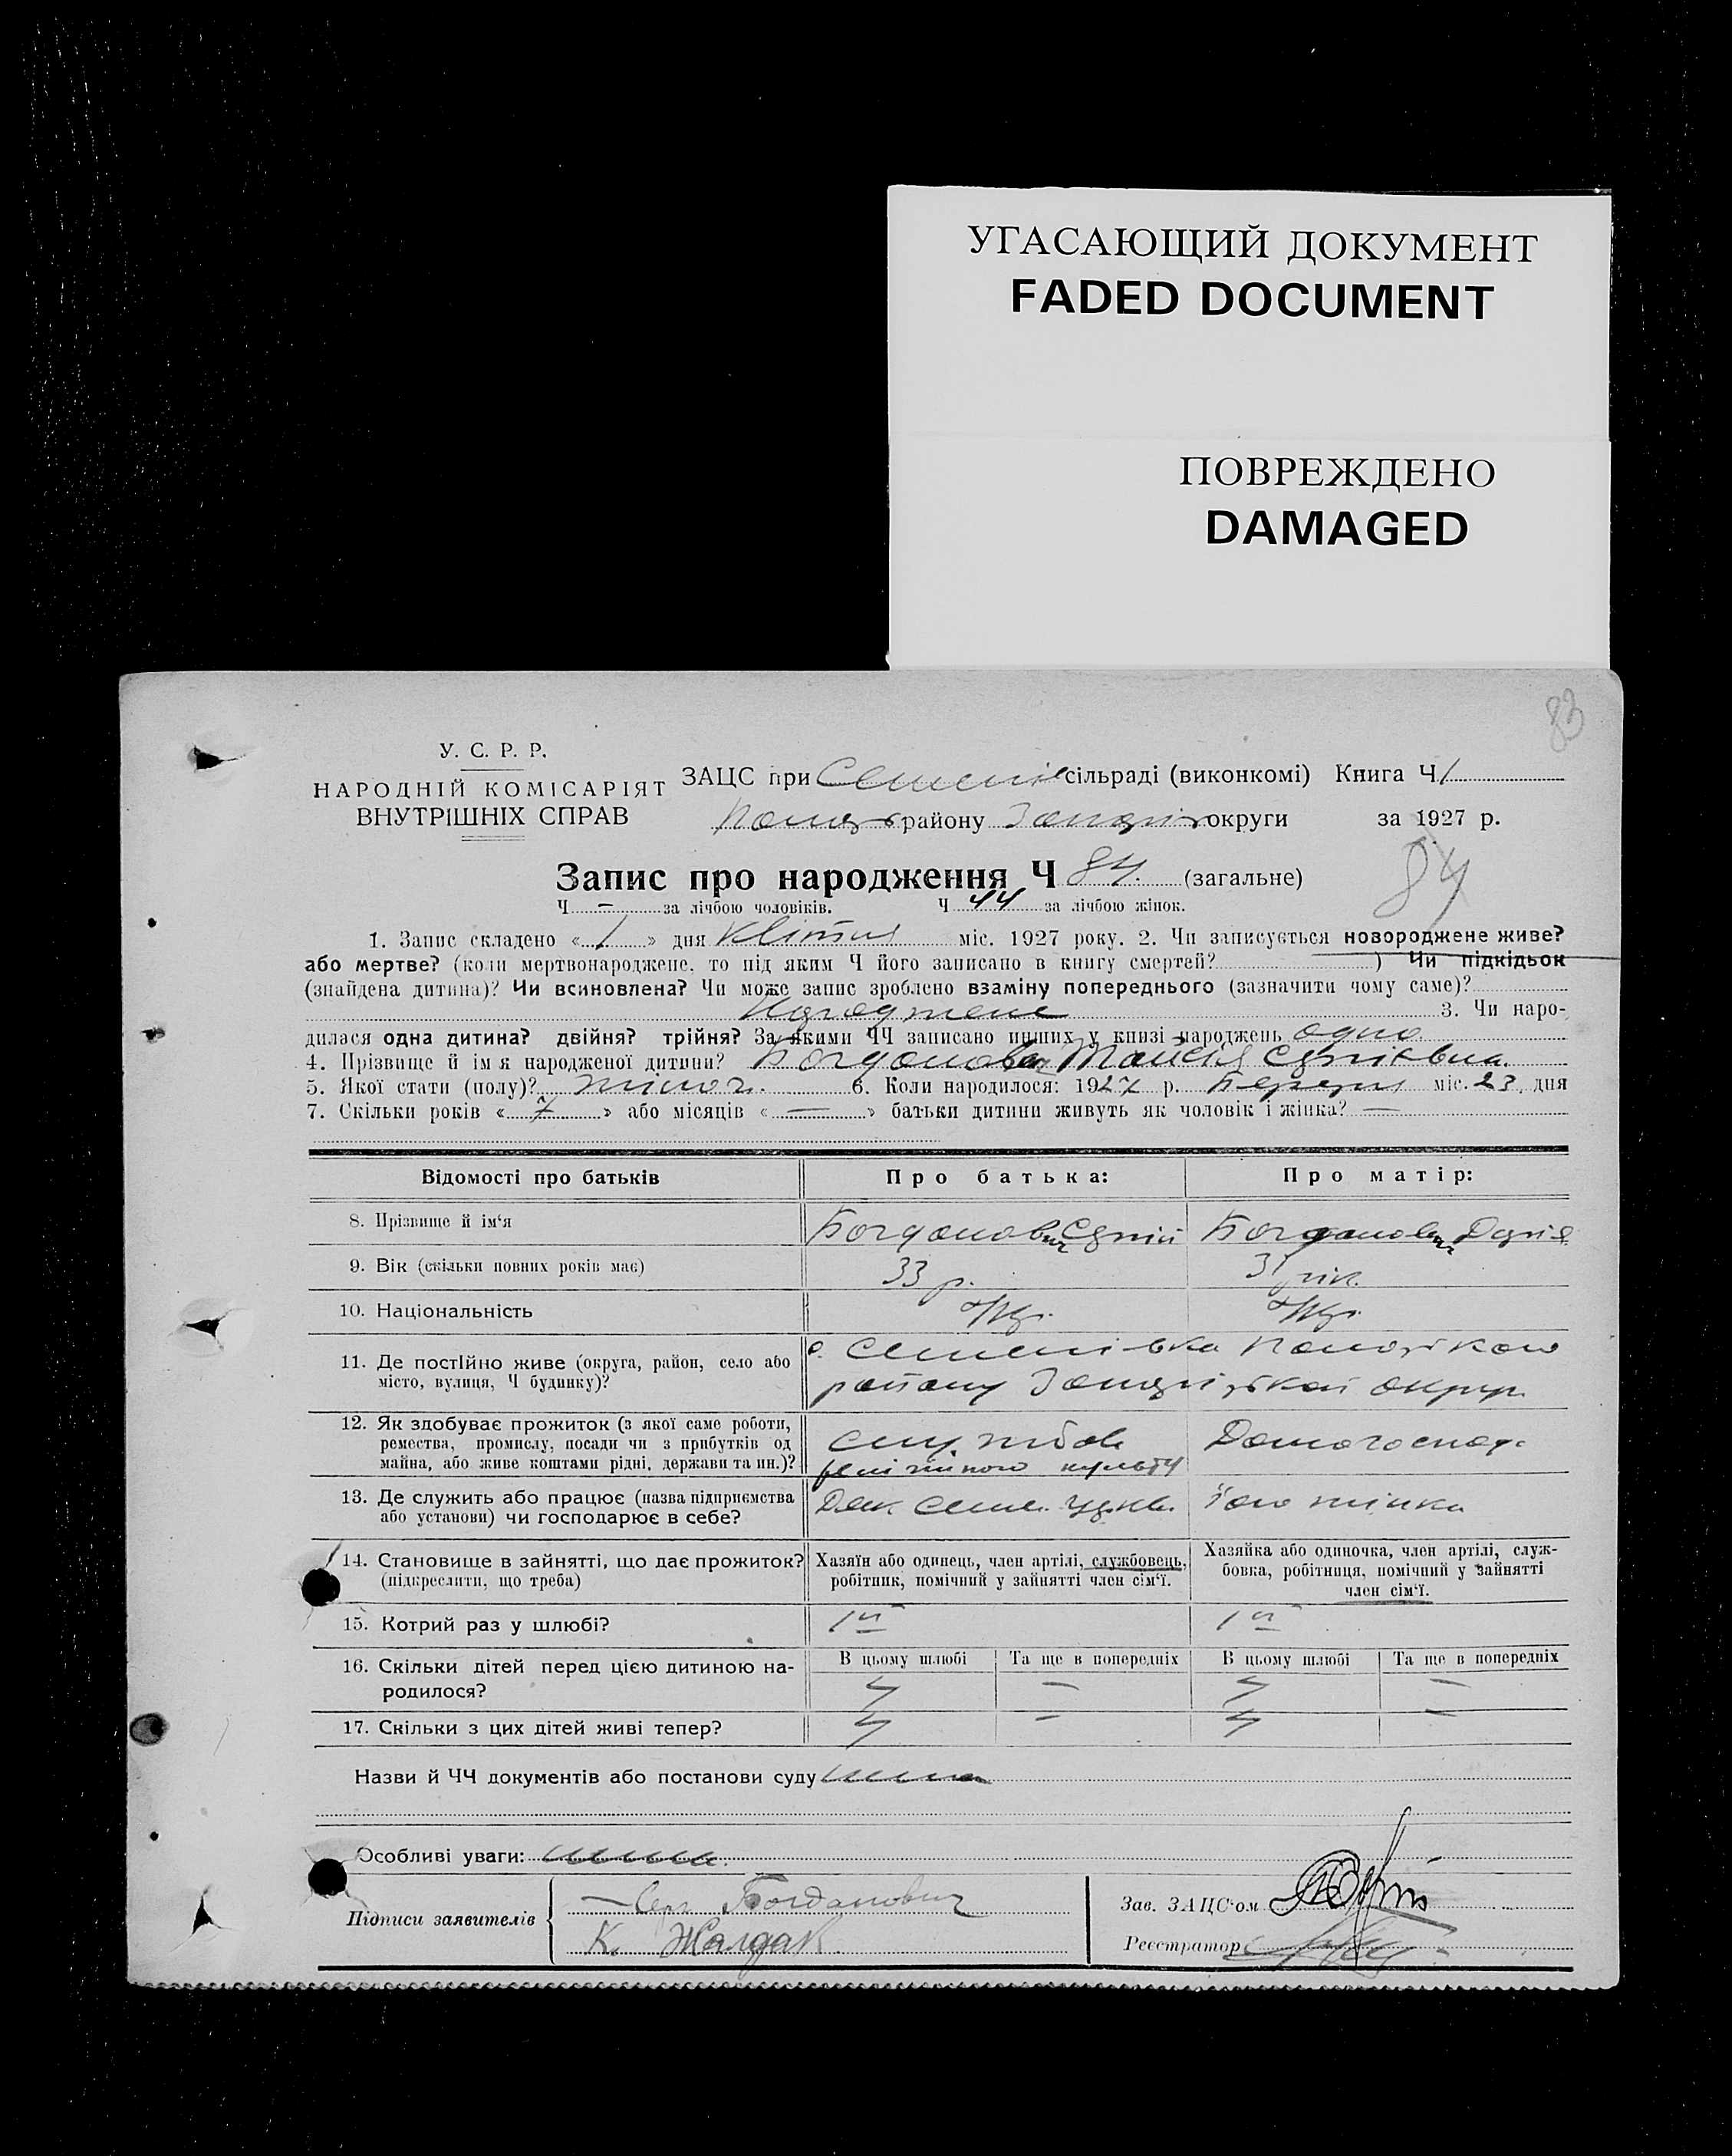 УГАСАЮЩИЙ ДОКУМЕНТ
FADED DOCUMENT
ПОВРЕЖДЕНО
DAMAGED
83
У. С. Р. Р.
НАРОДНІЙ КОМІСАРІЯТ
ВНУТРІШНІХ СПРАВ
ЗАЦС при сільраді (виконкомі) Книга Ч 1
району округи за 1927 р.
Запис про народження Ч 84. (загальне)
84
Ч – за лічбою чоловіків. Ч 44 за лічбою жінок.
1. Запис складено « 1 » дня квітня міс. 1927 року. 2. Чи записується новороджене живе?
або мертве? (коли мертвонароджене, то під яким Ч його записано в книгу смертей? ) Чи підкідьок
(знайдена дитина)? Чи всиновлена? Чи може запис зроблено взаміну попереднього (зазначити чому саме)?
3. Чи наро-
дилася одна дитина? двійня? трійня? За якими ЧЧ записано инших у книзі народжень одно.
4. Прізвище й ім я народженої дитини? Богданович Таисія Сергіївна.
5. Якої стати (полу)? жіноч. 6. Коли народилося: 1927 р. Березня міс. 23, дня
7. Скільки років « 7 » або місяців « — » батьки дитини живуть як чоловік і жінка? —
Відомості про батьків
Про батька:
Про матір:
8. Прізвище й ім'я
Богданович Сергій
Богданович Дарія
9. Вік (скільки повних років має)
33 р.
31 рік.
10. Національність
Укр.
Укр.
11. Де постійно живе (округа, район, село або
місто, вулиця, Ч будинку)?
с. Семенівка
району Запорізької округи
12. Як здобуває прожиток (з якої саме роботи,
ремества, промислу, посади чи з прибутків од
майна, або живе коштами рідні, держави та ин.)?
службов
релігійного культу
Домогоспод.
13. Де служить або працює (назва підприємства
або установи) чи господарює в себе?
Дяк Семен. церкв.
його жінка
14. Становище в зайнятті, що дає прожиток?
(підкреслити, що треба)
Хазяїн або одинець, член артілі, службовець,
робітник, помічний у зайнятті член сім'ї.
Хазяйка або одиночка, член артілі, служ-
бовка, робітниця, помічний у зайнятті
член сім'ї.
15. Котрий раз у шлюбі?
1й
1й
16. Скільки дітей перед цією дитиною на-
родилося?
В цьому шлюбі
Та ще в попередніх
В цьому шлюбі
Та ще в попередніх
4 – 4 –
17. Скільки з цих дітей живі тепер?
4 – 4 –
Назви й ЧЧ документів або постанови суду нема
Особливі уваги: нема.
Підписи заявителів
Серг Богданович
К. Жалдак
Зав. ЗАЦС'ом
Реєстратор